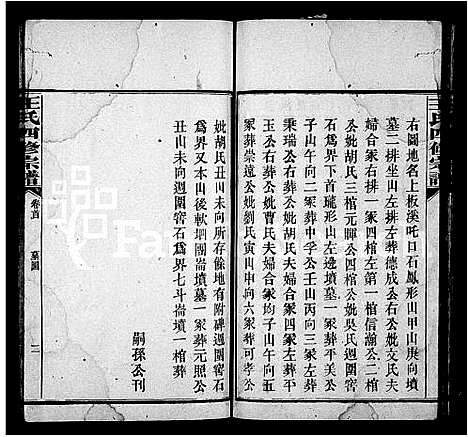 王氏四修宗譜
右圖地名上板溪吒口石鳳形山甲山庚向墳
墓二排坐山左排左葬德成公右公妣文氏夫
婦合冢右排一冢四棺左第一棺信瀚公二棺
公妣胡氏三棺元暉公四棺公妣吳氏週圍窖
石爲界下首琉形山左邊墳墓一冢葬平美公
子山午向二冢葬中孚公壬山丙向三冢左葬
秉瑞公右葬胡氏夫婦合冢四冢左葬
公右葬公妣曹氏夫婦合冢均子山午向五
冢葬崇遠公妣劉氏寅山申向六冢葬可孝公
妣胡氏丑山未向所存餘地有附碑週圍窖石
爲界又本山後軟坍團崙墳墓一冢葬元照公
丑山未向週圍窖石爲界七斗崙墳一棺葬
嗣孫公刊
王氏四修宗譜
卷首
墓圖
二